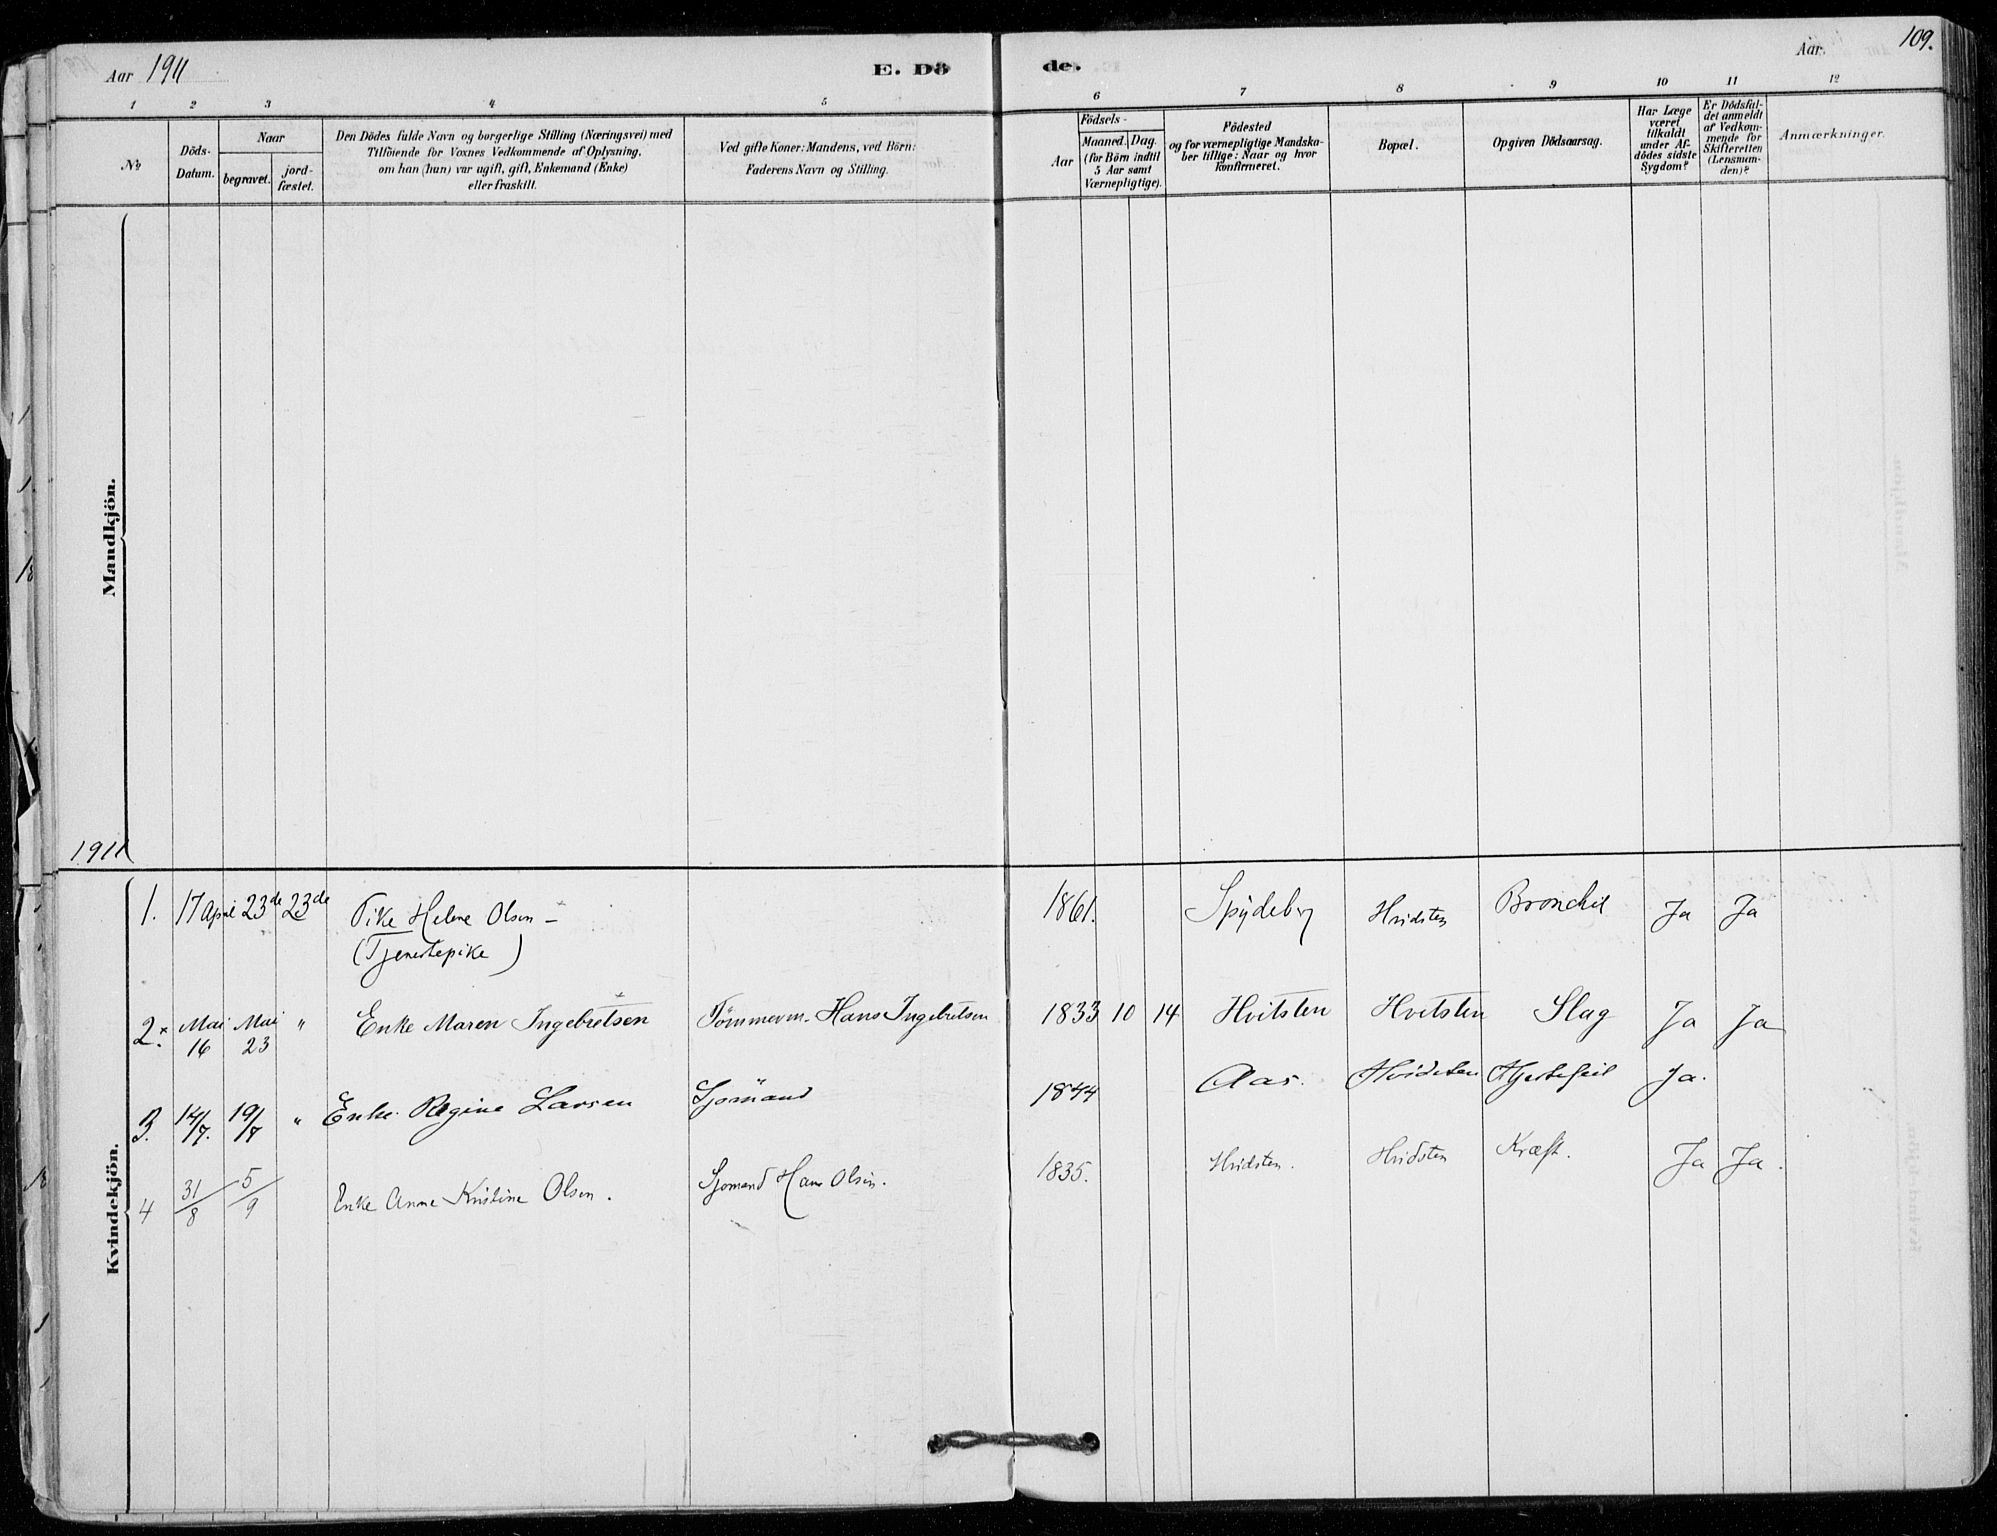 Aar 1911
E. Dö
de.
Aar.
109.
1 2 3 4 5 6 7 8 9 10 11 12
No
Döds-
Datum.
Naar
begravet.
jord-
fæstet.
Den Dödes fulde Navn og borgerlige Stilling (Næringsvei) med
Tilföiende for Voxnes Vedkommende af Oplysning,
om han (hun) var ugift, gift, Enkemand (Enke)
eller fraskilt.
Ved gifte Koner: Mandens, ved Börn:
Faderens Navn og Stilling.
Födsels-
Aar
Maaned. Dag.
(for Börn indtil
5 Aar samt
Værnepligtige).
Födested
og for værnepligtige Mandska-
ber tillige: Naar og hvor
konfirmeret.
Bopæl.
Opgiven Dödsaarsag.
Har Læge
været
tilkaldt
under Af-
dödes sidste
Sygdom?
Er Dödsfal-
det anmeldt
af Vedkom-
mende for
Skifteretten
(Lensman-
den)?
Anmærkninger.
Mandkjön.
1911
Kvindekjön.
1. 17 April 23de 23de Pike Helene Olsen – 1861. Spydeberg Hvidsten Bronchit Ja Ja
(Tjenestepike)
2. Mai 16 Mai 23 " Enke Maren Ingebretsen Tömmerm. Hans Ingebretsen 1833 10 14 Hvitsten Hvitsten Slag Ja Ja
3. 14/7. 19/7 " Enke Regine Larsen Sjömand 1844 Aas. Hvidsten Hjertefeil Ja.
4 31/8 5/9 Enke Anne Kristine Olsen. Sjomand Hans Olsen. 1835. Hvidsten. Hvidsten Kræft. Ja Ja.